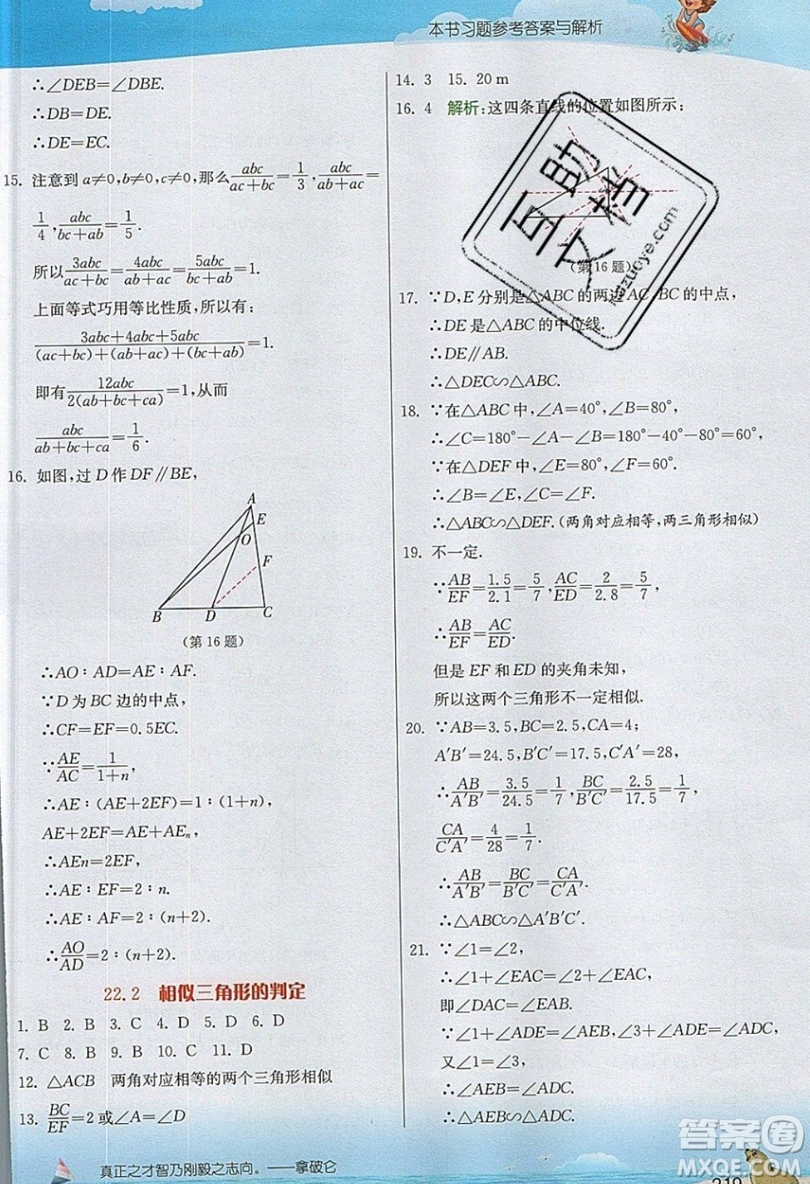 本书习题参考答案与解析
∴∠DEB=∠DBE.
∴DB=DE.
∴DE=EC.
15. 注意到 a≠0,b≠0,c≠0,那么 abc/(ac+bc)=1/3, abc/(ab+ac)=
1/4, abc/(bc+ab)=1/5.
所以 3abc/(ac+bc)=4abc/(ab+ac)=5abc/(bc+ab)=1.
上面等式巧用等比性质,所以有
(3abc+4abc+5abc)/((ac+bc)+(ab+ac)+(bc+ab))=1.
即有 12abc/(2(ab+bc+ca))=1,从而
abc/(ab+bc+ca)=1/6.
16. 如图,过 D 作 DF∥BE,
A
E
O
F
B D C
(第 16 题)
∴AO∶AD=AE∶AF.
∵D 为 BC 边的中点,
∴CF=EF=0.5EC.
∵AE/AC=1/(1+n),
∴AE∶(AE+2EF)=1∶(1+n),
AE+2EF=AE+AEn,
∴AEn=2EF,
∴AE∶EF=2∶n.
∴AE∶AF=2∶(n+2).
∴AO/AD=2∶(n+2).
22.2 相似三角形的判定
1. B 2. B 3. C 4. D 5. D 6. D
7. C 8. B 9. B 10. C 11. D
12. △ACB 两角对应相等的两个三角形相似
13. BC/EF=2 或∠A=∠D
14. 3 15. 20 m
16. 4 解析:这四条直线的位置如图所示:
(第 16 题)
17. ∵D,E 分别是△ABC 的两边 AC,BC 的中点,
∴DE 是△ABC 的中位线.
∴DE∥AB.
∴△DEC∽△ABC.
18. ∵在△ABC 中,∠A=40°,∠B=80°,
∴∠C=180°-∠A-∠B=60°.
∵在△DEF 中,∠E=80°,∠F=60°.
∴∠B=∠E,∠C=∠F.
∴△ABC∽△DEF.(两角对应相等,两三角形相似)
19. 不一定.
∵AB/EF=1.5/2.1=5/7, AC/ED=2/2.8=5/7,
∴AB/EF=AC/ED.
但是 EF 和 ED 的夹角未知,
所以这两个三角形不一定相似.
20. ∵AB=3.5,BC=2.5,CA=4;
A′B′=24.5,B′C′=17.5,C′A′=28,
∴AB/A′B′=3.5/24.5=1/7, BC/B′C′=2.5/17.5=1/7,
CA/C′A′=4/28=1/7.
∴AB/A′B′=BC/B′C′=CA/C′A′.
∴△ABC∽△A′B′C′.
21. ∵∠1=∠2,
∴∠1+∠EAC=∠2+∠EAC,
即∠DAC=∠EAB.
∵∠1+∠ADE=∠AEB,∠3+∠ADE=∠ACB,
又∠1=∠3,
∴∠AEB=∠ACB.
∴△AEB∽△ADC.
互助
文档
huzuoye.com
真正之才智乃刚毅之志向。——拿破仑
219
答案圈
MXQE.COM